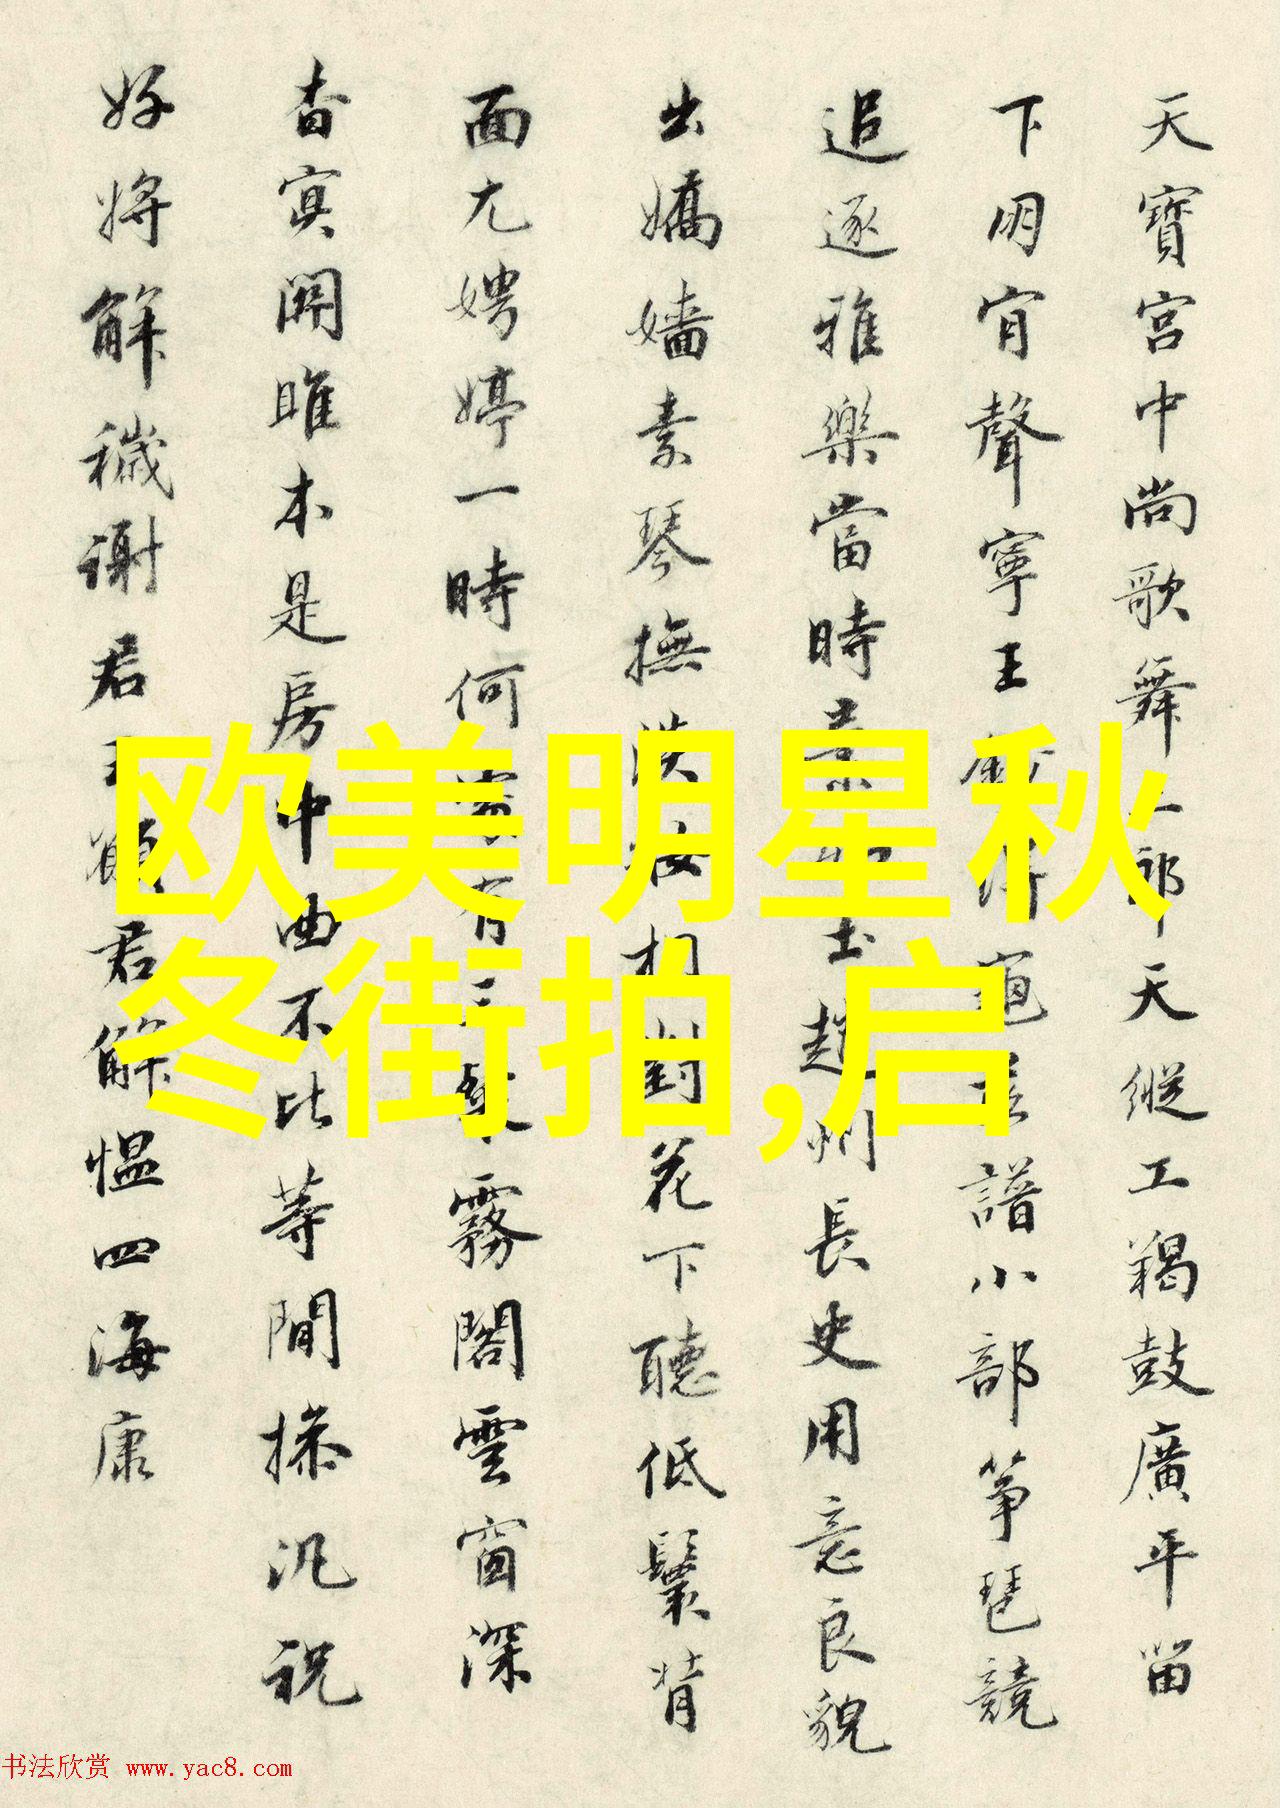 天寶宮中尚歌舞郎天縱工羯鼓廣平
下朋肯聲寧王龜茲譜小部箏琵競
追逐雅樂當時趙州長史用意良貌
出嬌嬙素琴撫相對花下聽低鬟背
面尤娉婷一時何有霧閣雲窗深
杳冥關雎本是房中曲不比等閒操汎祝
好將解穢謝君王願君解慍四海康
欧美明星秋
冬街拍,启
书法欣赏 www.yac8.com